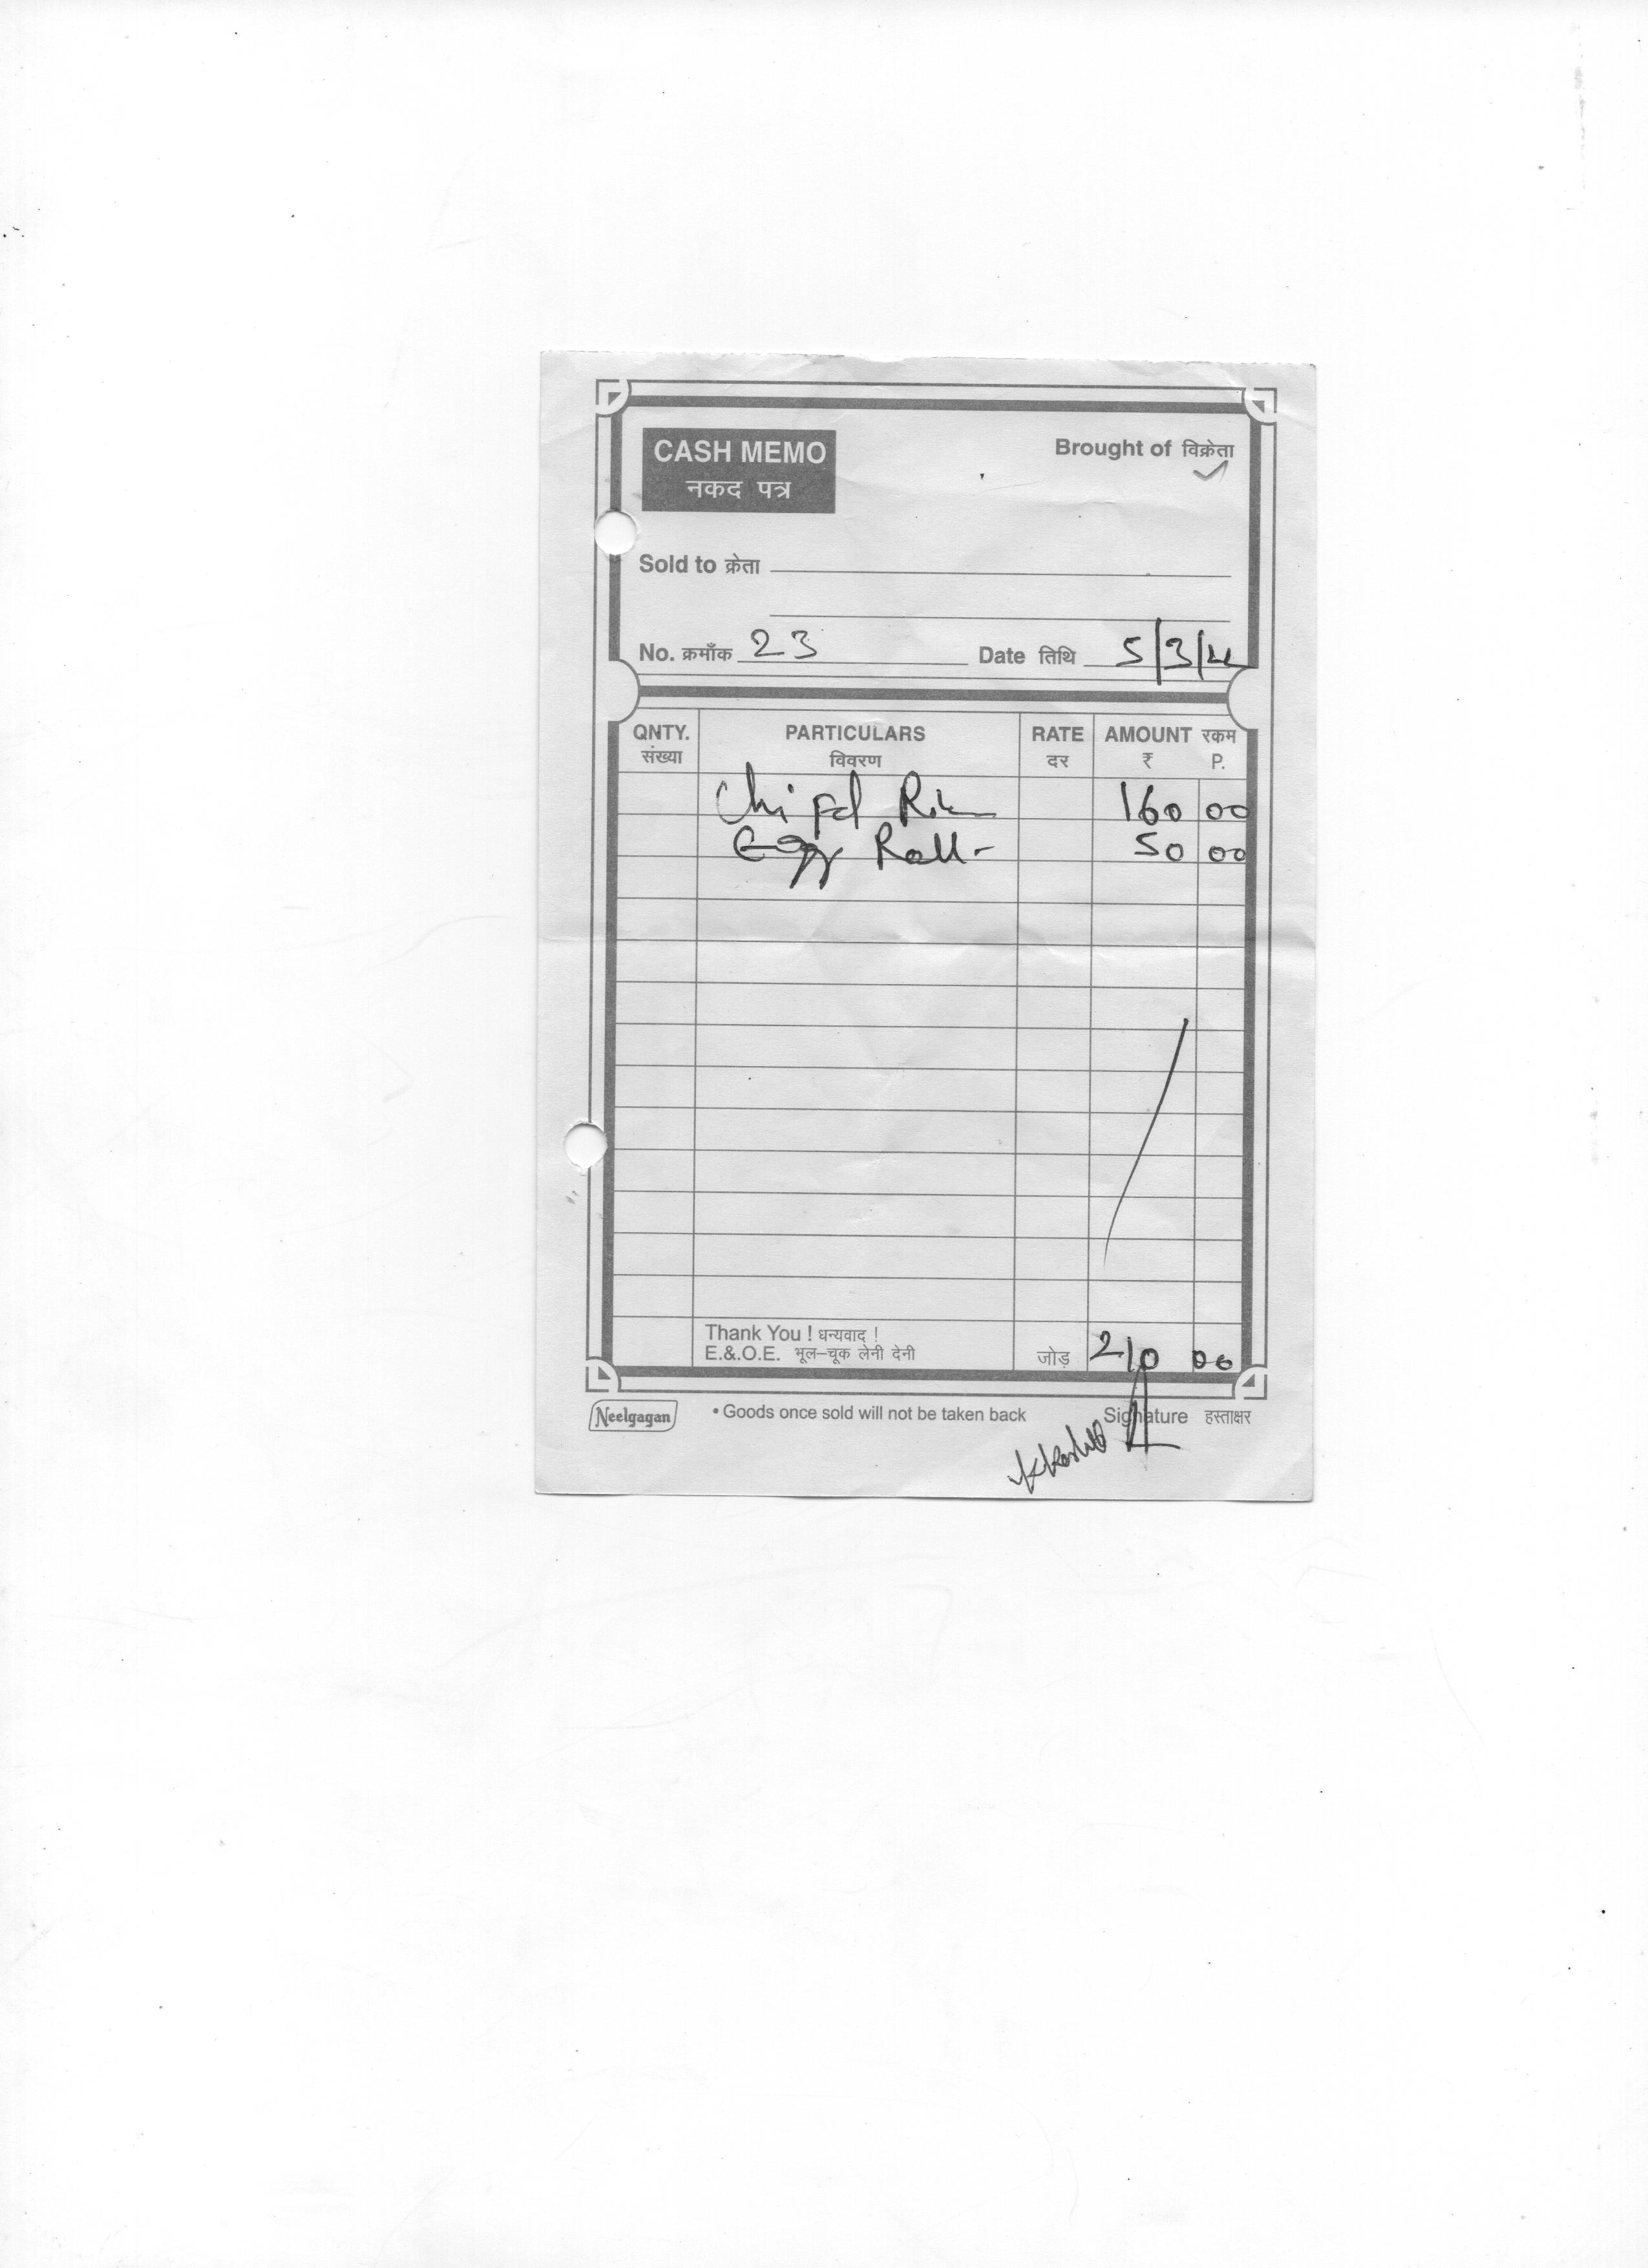 CASH MEMO
नकद पत्र
Brought of विक्रेता
Sold to क्रेता
No. क्रमाँक 23
Date तिथि 5/3/
QNTY. PARTICULARS RATE AMOUNT रकम
संख्या विवरण दर ₹ P.
Chi Fd 160 00
Egg Roll- 50 00
Thank You ! धन्यवाद !
E.&.O.E. भूल–चूक लेनी देनी जोड़ 210 00
Neelgagan • Goods once sold will not be taken back Signature हस्ताक्षर